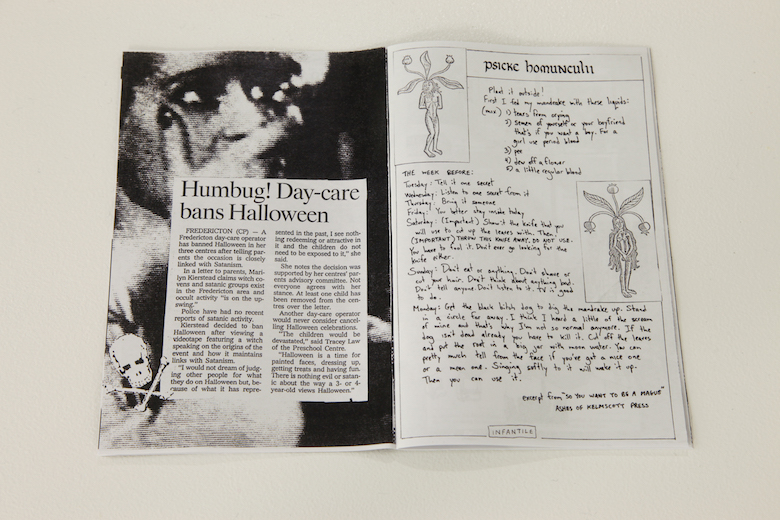 Humbug! Day-care
bans Halloween
FREDERICTON (CP) — A
Fredericton day-care operator
has banned Halloween in her
three centres after telling par-
ents the occasion is closely
linked with Satanism.
In a letter to parents, Mari-
lyn Kierstead claims witch co-
vens and satanic groups exist
in the Fredericton area and
occult activity "is on the up-
swing."
Police have had no recent
reports of satanic activity.
Kierstead decided to ban
Halloween after viewing a
videotape featuring a witch
speaking on the origins of the
event and how it maintains
links with Satanism.
"I would not dream of judg-
ing other people for what
they do on Halloween but, be-
cause of what it has repre-
sented in the past, I see noth-
ing redeeming or attractive in
it and the children do not
need to be exposed to it," she
said.
She notes the decision was
supported by her centres' par-
ents advisory committee. Not
everyone agrees with her
stance. At least one child has
been removed from the cen-
tres over the letter.
Another day-care operator
would never consider cancel-
ling Halloween celebrations.
"The children would be
devastated," said Tracey Law
of the Preschool Centre.
"Halloween is a time for
painted faces, dressing up,
getting treats and having fun.
There is nothing evil or satan-
ic about the way a 3- or 4-
year-old views Halloween."
psicke homunculi
Plant it outside!
First I fed my mandrake with these liquids:
(mix) 1) tears from crying
2) semen of yourself or your boyfriend
that's if you want a boy. For a
girl use period blood
3) pee
4) dew off a flower
5) a little regular blood
THE WEEK BEFORE:
Tuesday: Tell it one secret
Wednesday: Listen to one secret from it
Thursday: Bring it someone
Friday: You better stay inside today
Saturday: (Important) Show it the knife that you
will use to cut up the leaves with. Then,
(IMPORTANT) THROW THIS KNIFE AWAY. DO NOT USE.
You have to fool it. Don't ever go looking for the
knife either.
Sunday: Don't eat or anything. Don't shave or
cut your hair. Don't think about anything bad.
Don't tell anyone. Don't listen to it. TV is good
to do.
Monday: Get the black bitch dog to dig the mandrake up. Stand
in a circle far away. I think I heard a little of the scream
of mine and that's why I'm not so normal anymore. If the
dog isn't dead already you have to kill it. Cut off the leaves
and put the root in a big jar with moon water. You can
pretty much tell from the face if you've got a nice one
or a mean one. Singing softly to it will wake it up.
Then you can use it.
excerpt from "SO YOU WANT TO BE A MAGUS"
ASHES OF KELMSCOTT PRESS
INFANTILE